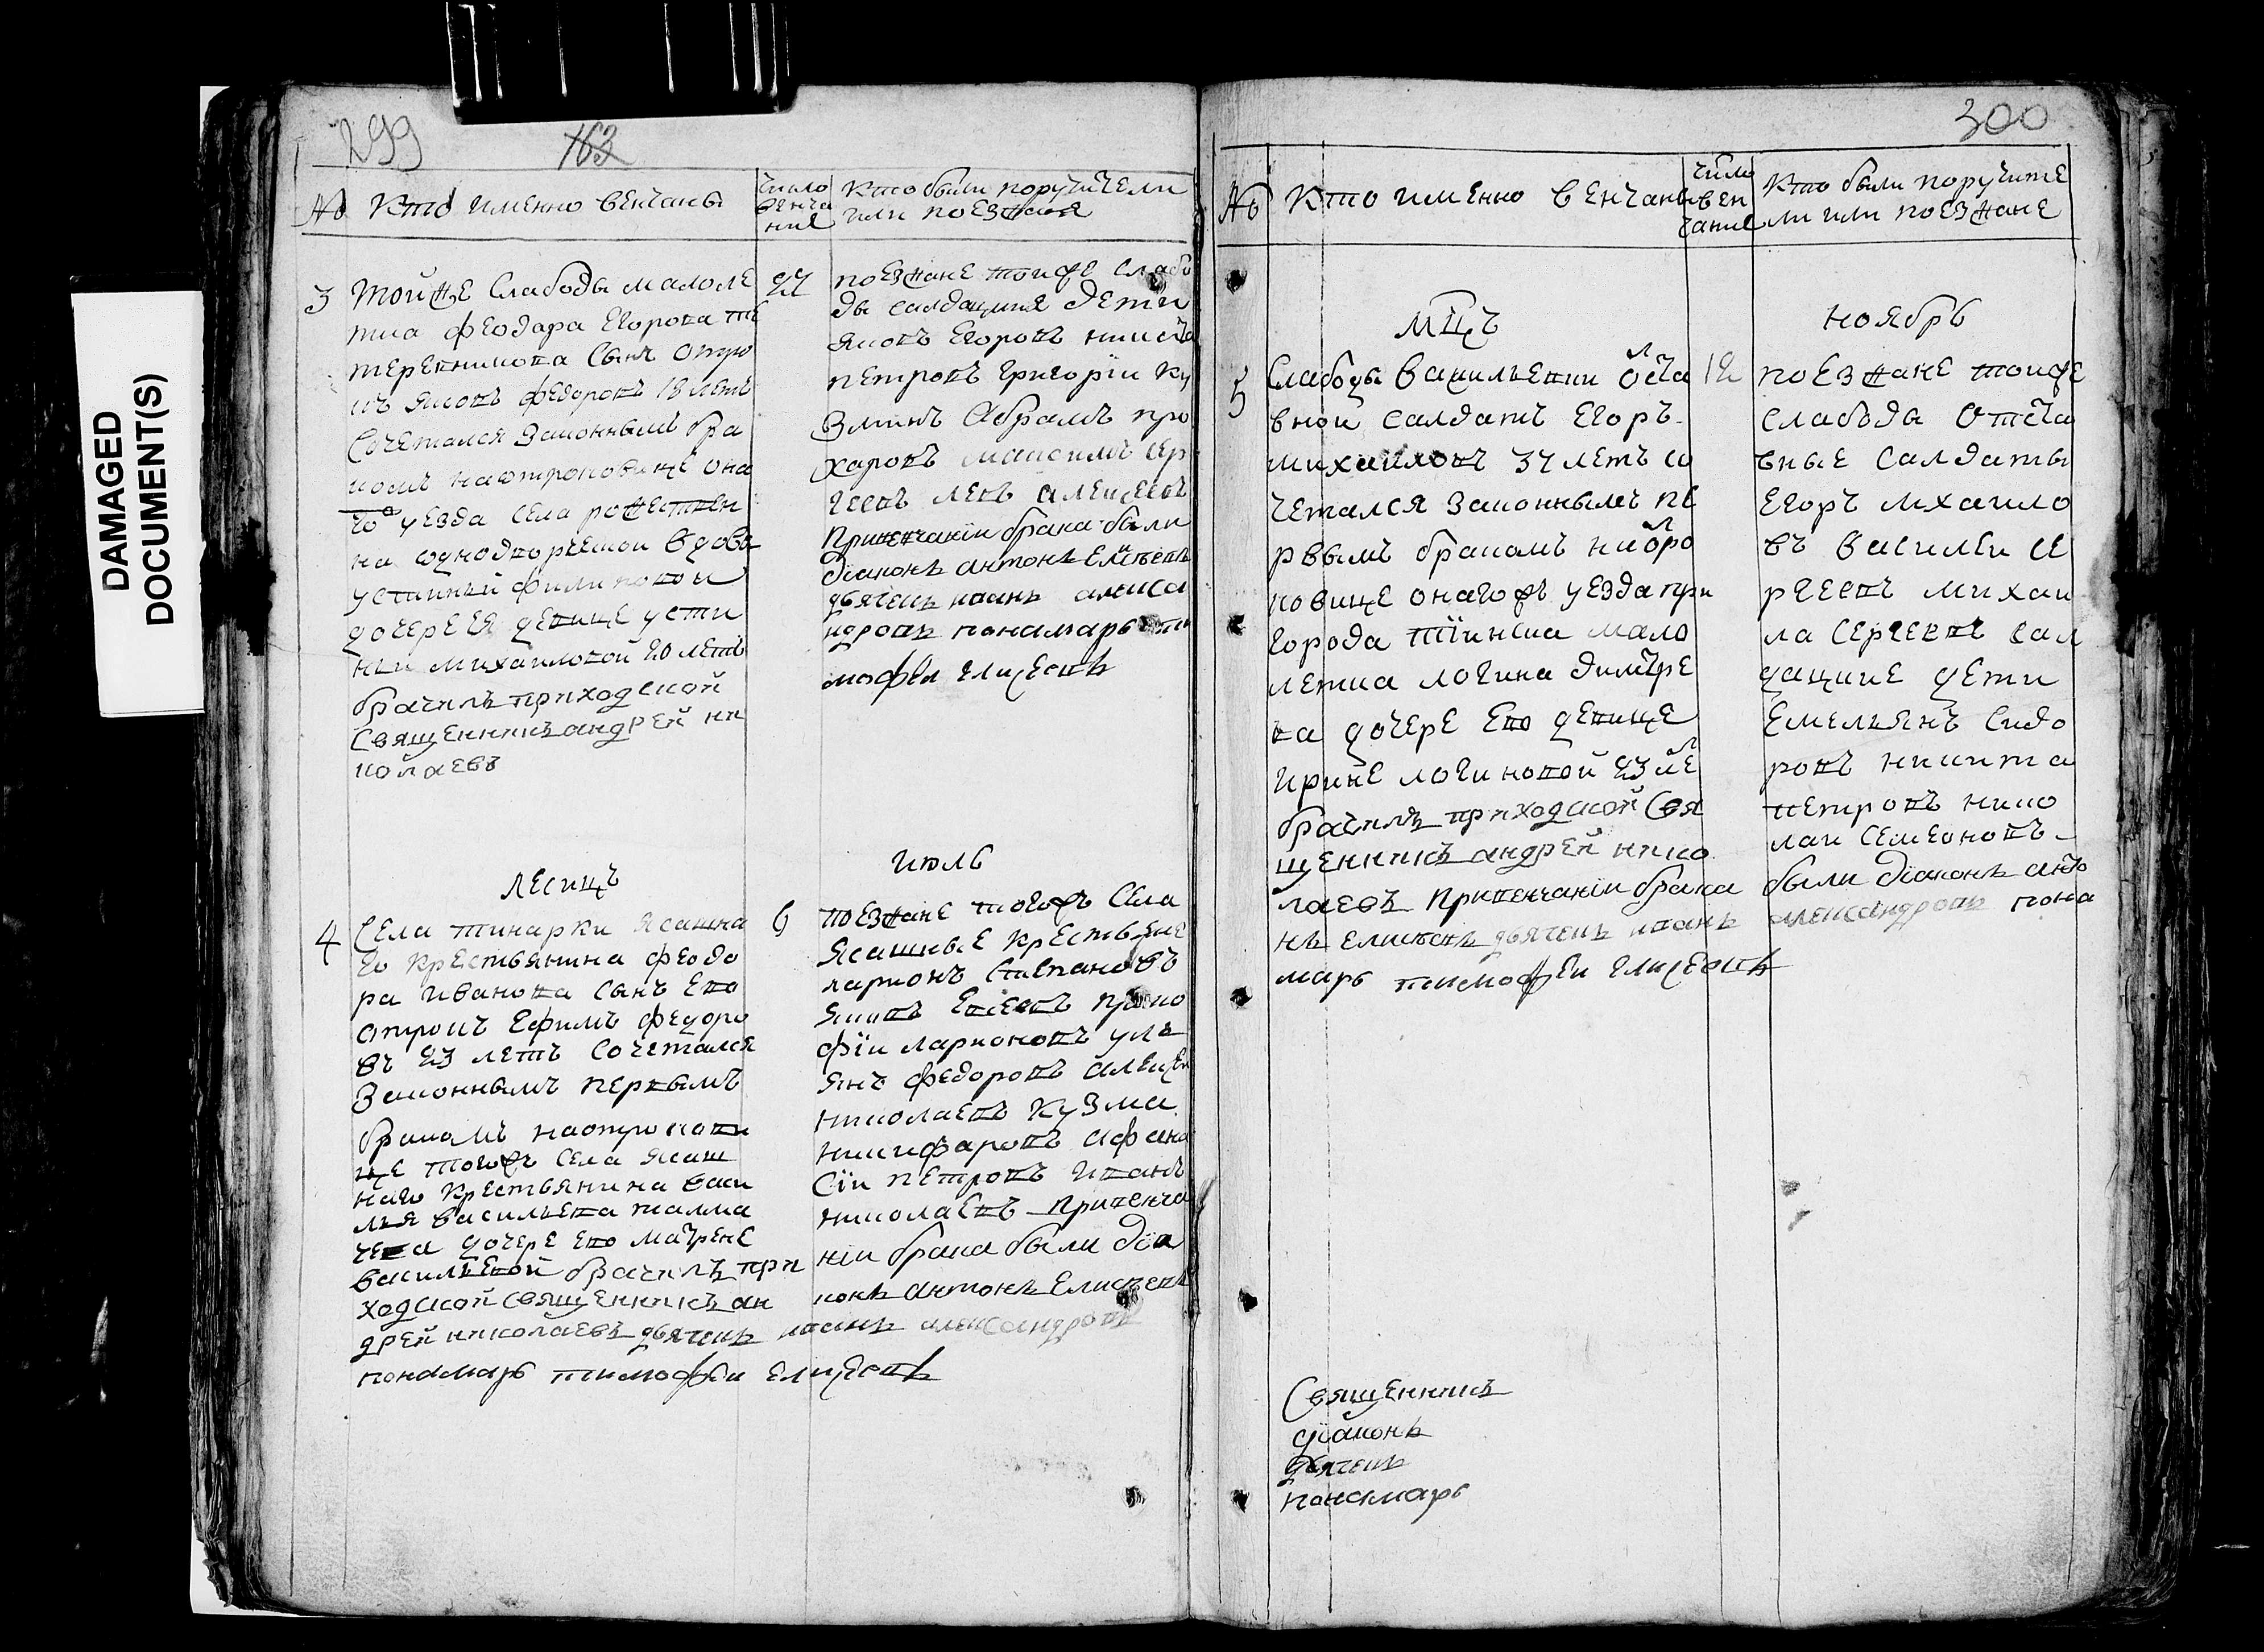 DAMAGED
DOCUMENT(S)
299
163
№ Кто именно венчаны
число
венча
ние
Кто были поручители
или поезжаня
3 Тойже Слабоды малоле
тка феодара Егорова те
теревникова Сынъ отро
къ яковъ федоровъ 18 летъ
Сочетался Законнымъ бра
комъ наотроковице она
го уезда Села рожествен
на однодворческой вдовы
устиньи филиповои
дочере ея девице усти
ньи михаиловой 20 летъ
брачилъ приходской
Священникъ андрей ни
колаевъ
22
поезжане тоиже слабо
ды салдацкия дети
яковъ Егоровъ никита
петровъ Григорїи Ку
Зминъ Абрамъ про
харовъ максимъ сер
геевъ левъ алексеевъ
привенчанїи брака были
дїаконъ антонъ Елисѣевъ
дьячекъ иванъ алекса
ндровъ понамарь ти
мофѣи елисѣевъ
месицъ
июль
4 Села тинарки ясашна
го крестьянина феодо
ра иванова Сынъ Ево
отрокъ Ефимъ федоро
въ 23 летъ Сочетался
Законнымъ первымъ
бракомъ наотрокови
це тогожъ Села ясаш
наго крестьянина васи
лья васильева талма
чева дочере ево матрене
васильевой брачилъ при
ходской священникъ ан
дрей николаевъ дьячекъ иванъ александровъ
понамарь тимофѣи елисѣевъ
6
поезжане тогожъ Села
ясашные крестьяне
ларионъ Степановъ
яковъ Евсеевъ проко
фїи ларионовъ улъ
янъ федоровъ алексеи
николаевъ Кузма
никифаровъ афана
сїи петровъ иванъ
николаевъ привенча
нїи брака были дїа
конъ антонъ Елисѣевъ
300
№ Кто именно венчаны
число
вен
чание
Кто были поручите
ли или поезжане
мцъ
ноябрь
5 Слабоды васильевки отста
вной салдатъ Егоръ
михаиловъ 34 летъ со
четался законнымъ пе
рвымъ бракомъ наотро
ковице оногожъ уезда при
города тїинска мало
летка логина дмитре
ва дочере ево девице
ирине логиновой 23 ле
брачилъ приходской Свя
щенникъ андрей нико
лаевъ привенчанїи брака были дїаконъ анто
нъ елисѣевъ дьячекъ иванъ александровъ пона
марь тимофѣи елисѣевъ
12
поезжане тоиже
слабоды отста
вные салдаты
Егоръ михаило
въ василеи се
ргеевъ михаи
ла Сергеевъ сал
дацкие дети
Емельянъ Сидо
ровъ никита
петровъ нико
лаи семеоновъ
Священникъ
дїаконъ
дьячекъ
понамарь